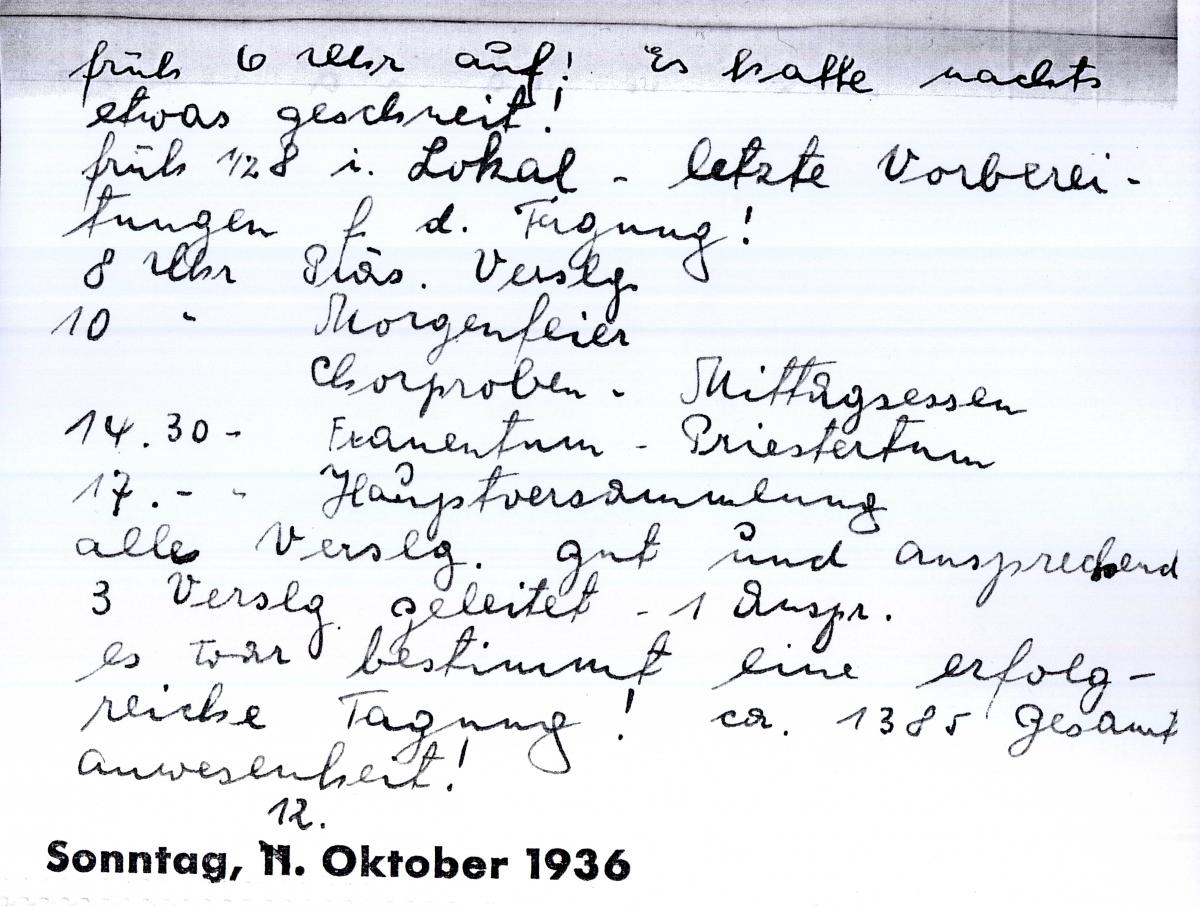 früh 6 Uhr auf! Es hatte nachts
etwas geschneit!
früh 1/2 8 i. Lokal - letzte Vorberei-
tungen f d. Tagung!
8 Uhr Präs. Verslg.
10 " Morgenfeier
Chorproben - Mittagsessen
14.30 - Frauentum - Priestertum
17.- " Hauptversammlung
alle Verslg. gut und ansprechend
3 Verslg. geleitet - 1 Anspr.
es war bestimmt eine erfolg-
reiche Tagung! ca. 1385 Gesamt
anwesenheit!
12.
Sonntag, 11. Oktober 1936